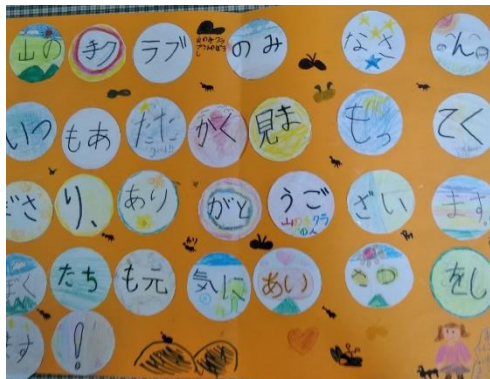 山の 手ク ラブ のみ なさ んの
いつ もあ たた かく 見ま もっ てく
ださ り、 あり がと うご ざい ます
ぼく たち も元 気に あい さつ をし
ます !